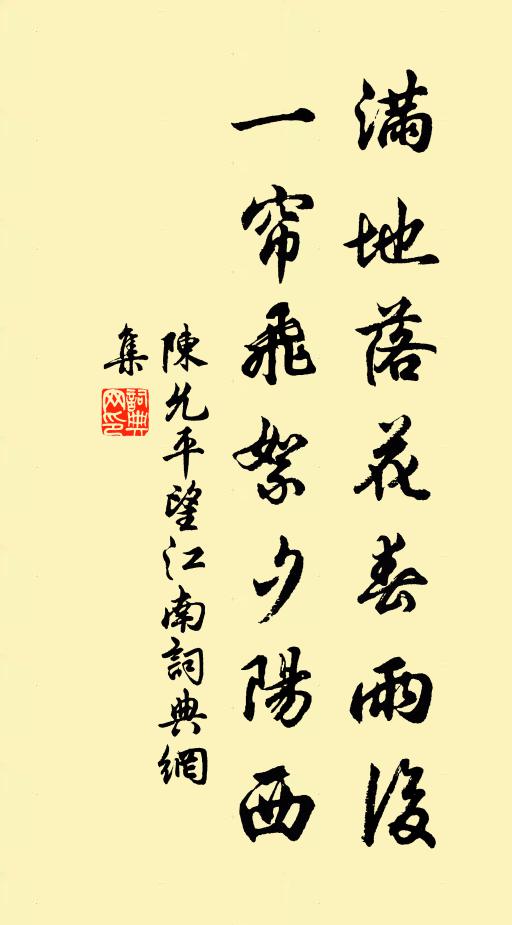 滿地落花春雨後
一帘飛絮夕陽西
陳允平望江南詞典網
集
詞典网印